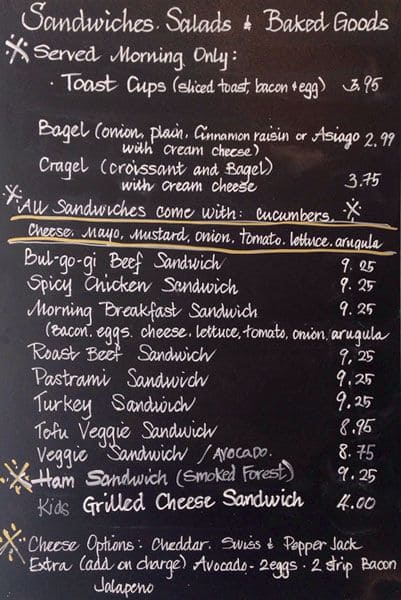 Sandwiches. Salads & Baked Goods
Served Morning Only:
· Toast Cups (sliced toast, bacon + egg) 3.95
Bagel (onion, plain, Cinnamon raisin or Asiago 2.99
with cream cheese)
Cragel (croissant and Bagel)
with cream cheese 3.75
All Sandwiches come with: cucumbers.
Cheese. Mayo, mustard, onion. tomato. lettuce. arugula
Bul-go-gi Beef Sandwich 9.25
Spicy Chicken Sandwich 9.25
Morning Breakfast Sandwich 9.25
(Bacon. eggs. cheese. lettuce, tomato, onion, arugula
Roast Beef Sandwich 9.25
Pastrami Sandwich 9.25
Turkey Sandwich 9.25
Tofu Veggie Sandwich 8.95
Veggie Sandwich / Avocado. 8.75
Ham Sandwich (Smoked Forest) 9.25
Kids Grilled Cheese Sandwich 4.00
Cheese Options: Cheddar. Swiss & Pepper Jack
Extra (add on charge) Avocado - 2eggs · 2 strip Bacon
Jalapeno